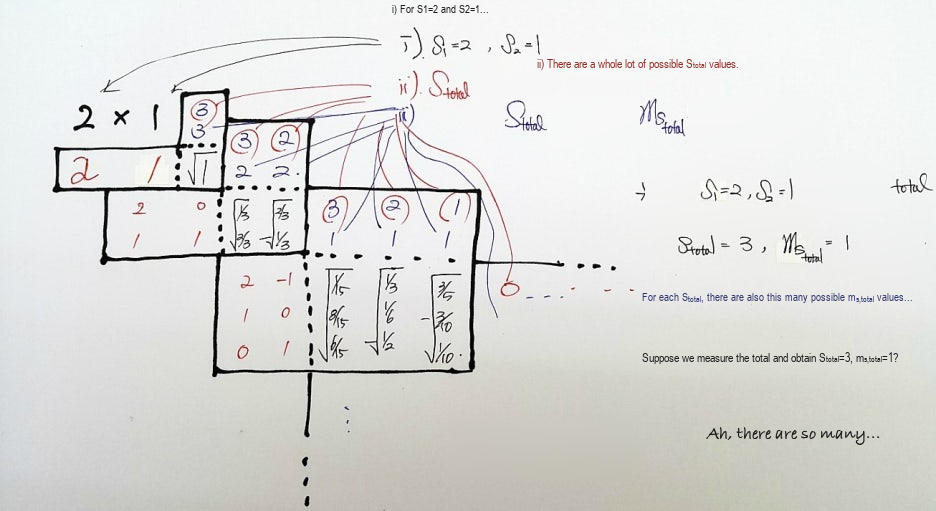 i) For S1=2 and S2=1...
i). S₁=2 , S₂=1
ii) There are a whole lot of possible Stotal values.
ii). Stotal
iii)
Stotal mstotal
2 × 1
3
3
3 2
2 2.
2 1 √1
2 0 √1/3 √2/3
1 1 √2/3 -√1/3
3 2 1
1 1 1
2 -1 √1/15 √1/3 √3/5
1 0 8/15 1/6 -3/10
0 1 √6/15 -√1/2 √1/10.
S₁=2, S₂=1 total
Stotal = 3 , mstotal = 1
For each Stotal, there are also this many possible ms,total values...
Suppose we measure the total and obtain Stotal=3, ms,total=1?
Ah, there are so many...